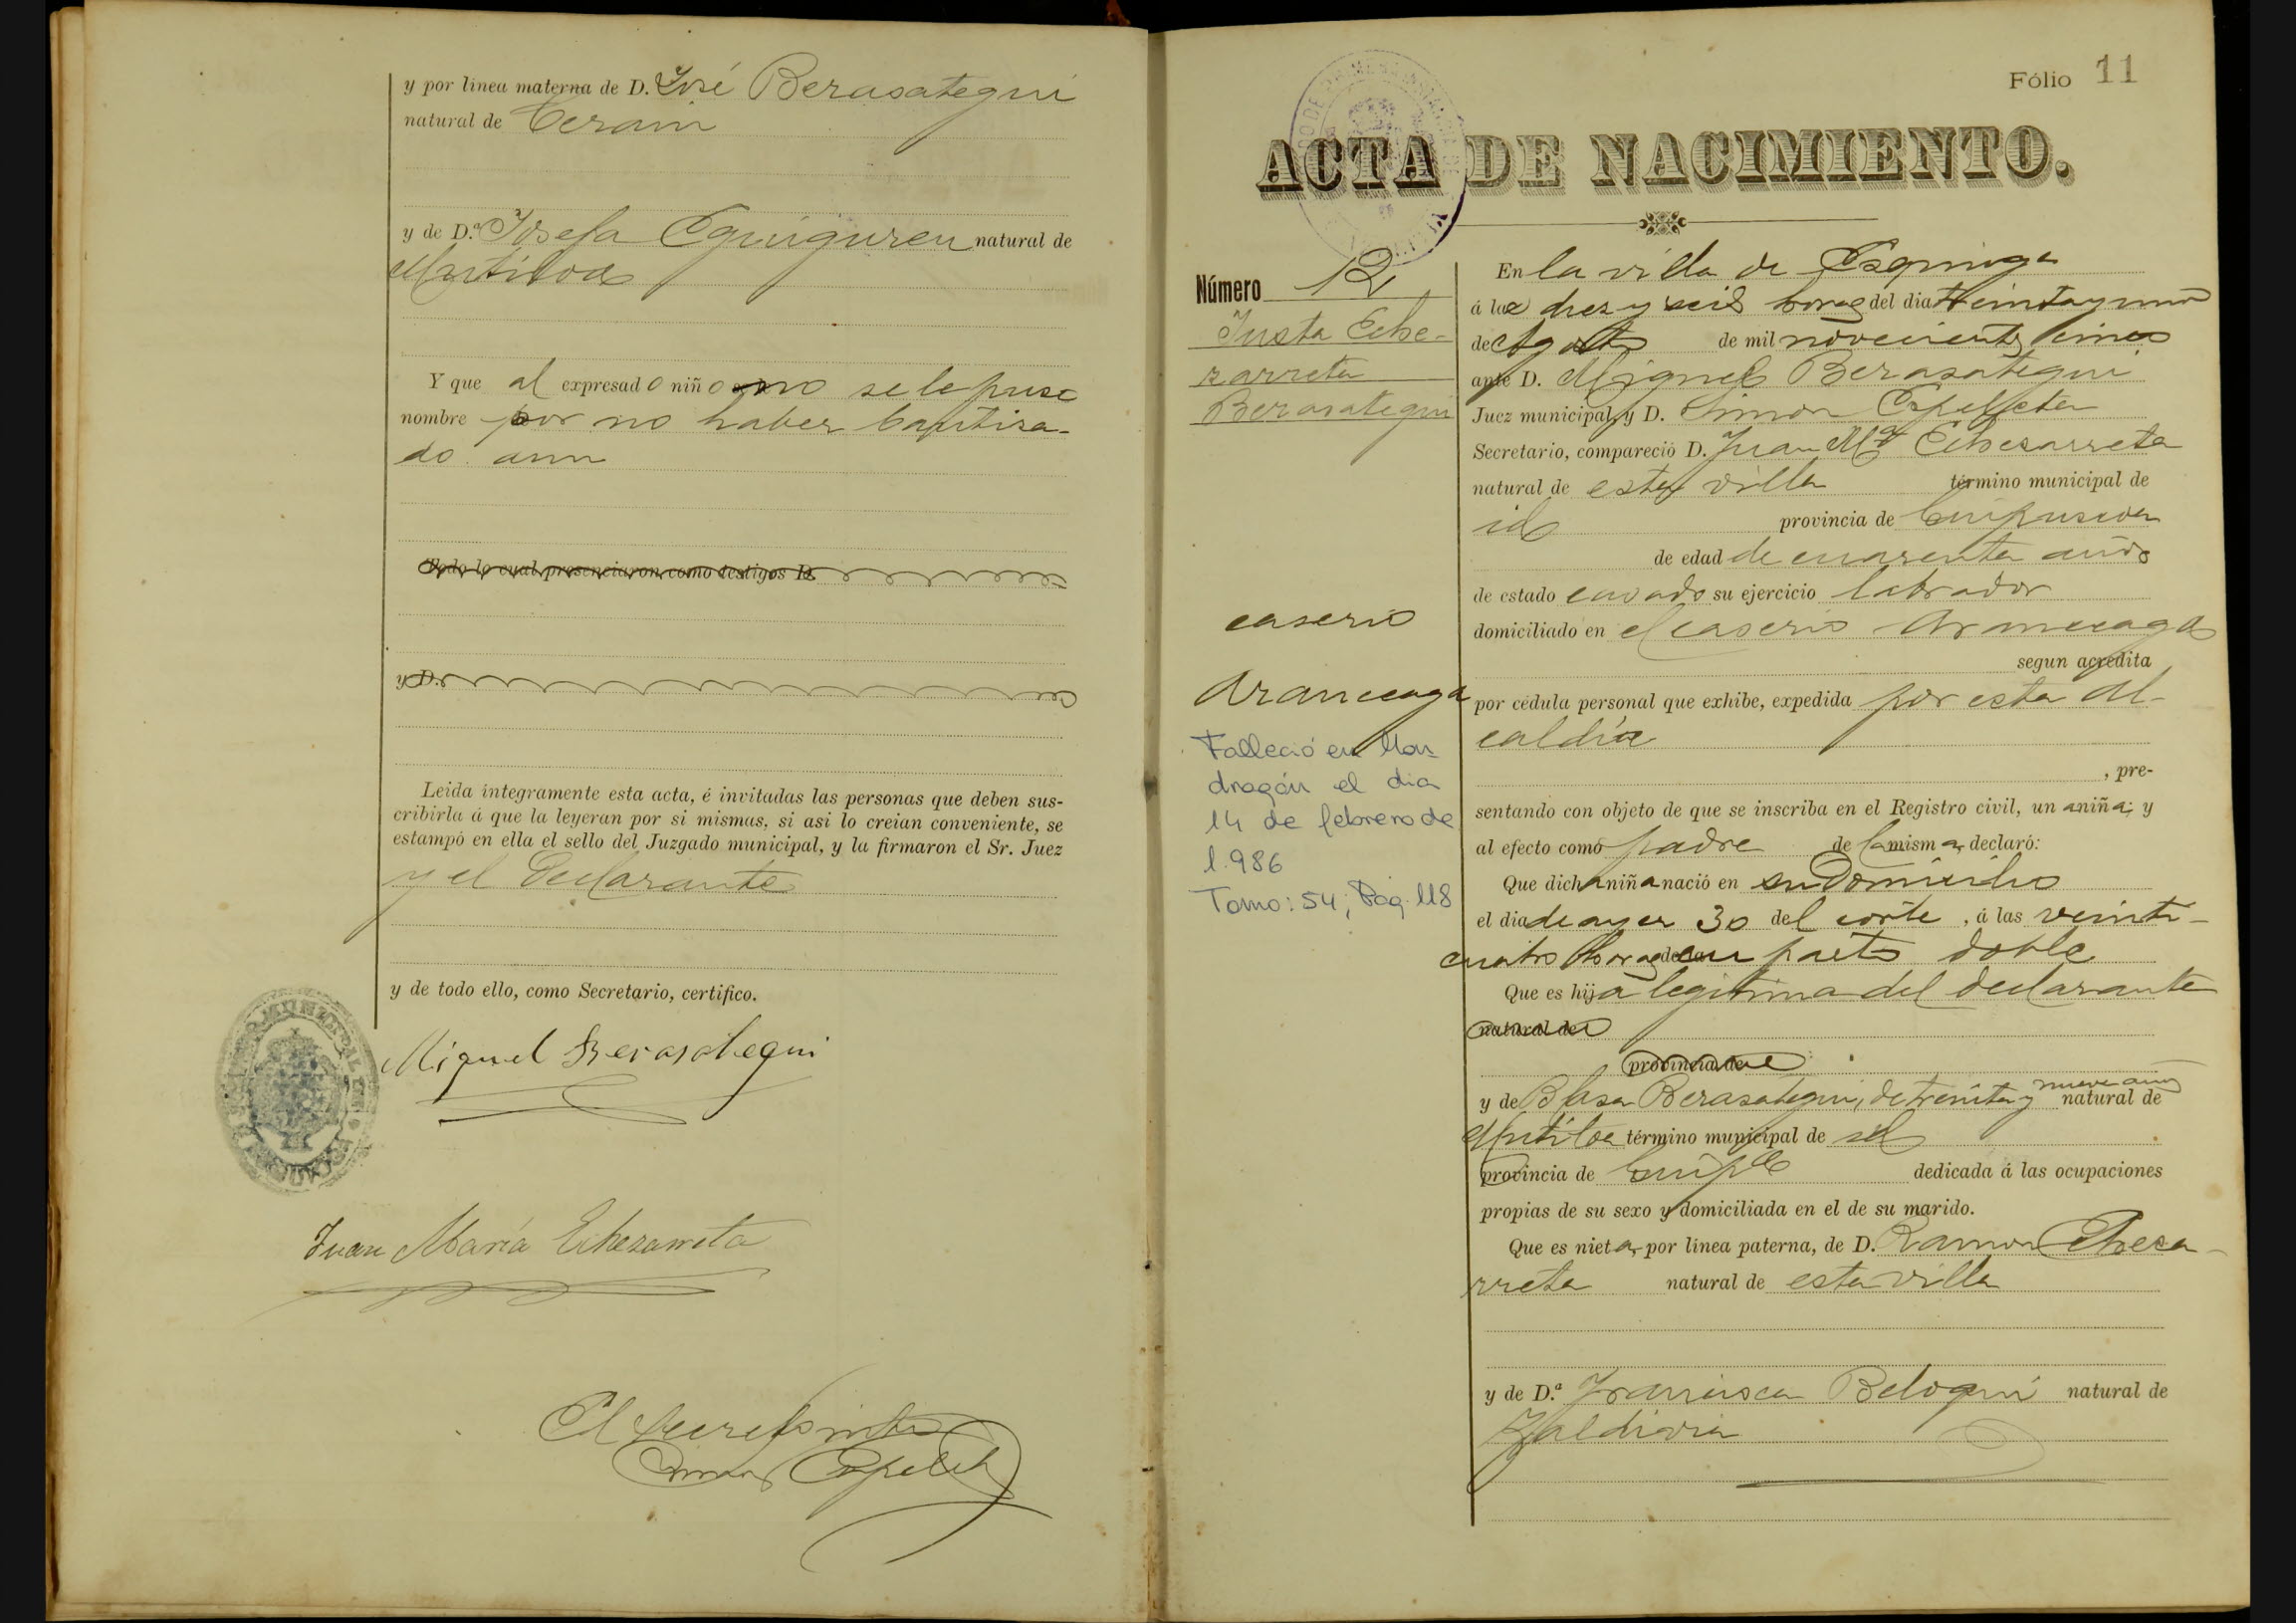 y por línea materna de D. José Berasategui
natural de Cerain
y de D.ª Josefa Eguiguren natural de
Mutiloa
Y que al expresado niño no se le puso
nombre por no haber bautiza-
do aun
Todo lo cual presenciaron como testigos D.
y D.
Leida íntegramente esta acta, é invitadas las personas que deben sus-
cribirla á que la leyeran por si mismas, si asi lo creian conveniente, se
estampó en ella el sello del Juzgado municipal, y la firmaron el Sr. Juez
y el Declarante
y de todo ello, como Secretario, certifico.
Miguel Berasategui
Juan María Echezarreta
El Secret
Simon Espeleta
Fólio 11
ACTA DE NACIMIENTO.
Número 12
Justa Eche-
zarreta
Berasategui
caserio
Aranceaga
Falleció en Mon-
dragón el dia
14 de febrero de
1.986
Tomo: 54, Pág. 118
En la villa de Ezquioga
á las diez y seis horas del dia treinta y uno
de Agosto de mil novecientos cinco
ante D. Miguel Berasategui
Juez municipal, y D. Simon Espeleta
Secretario, compareció D. Juan Mª Echezarreta
natural de esta villa término municipal de
id provincia de Guipuzcoa
de edad de cuarenta años
de estado casado su ejercicio labrador
domiciliado en el caserio Aranceaga
segun acredita
por cédula personal que exhibe, expedida por esta Al-
caldía
, pre-
sentando con objeto de que se inscriba en el Registro civil, un a niña; y
al efecto como padre de la misma, declaró:
Que dicha niña nació en su Domicilio
el dia de ayer 30 del corte, á las veinti-
cuatro horas de la en parto doble
Que es hija legitima del declarante
natural de
provincia de
y de Blasa Berasategui, de treinta y nueve años natural de
Mutiloa término municipal de id
provincia de Guipca dedicada á las ocupaciones
propias de su sexo y domiciliada en el de su marido.
Que es nieta, por línea paterna, de D. Ramon Echeza-
rreta natural de esta villa
y de D.ª Francisca Beloqui natural de
Zaldivia